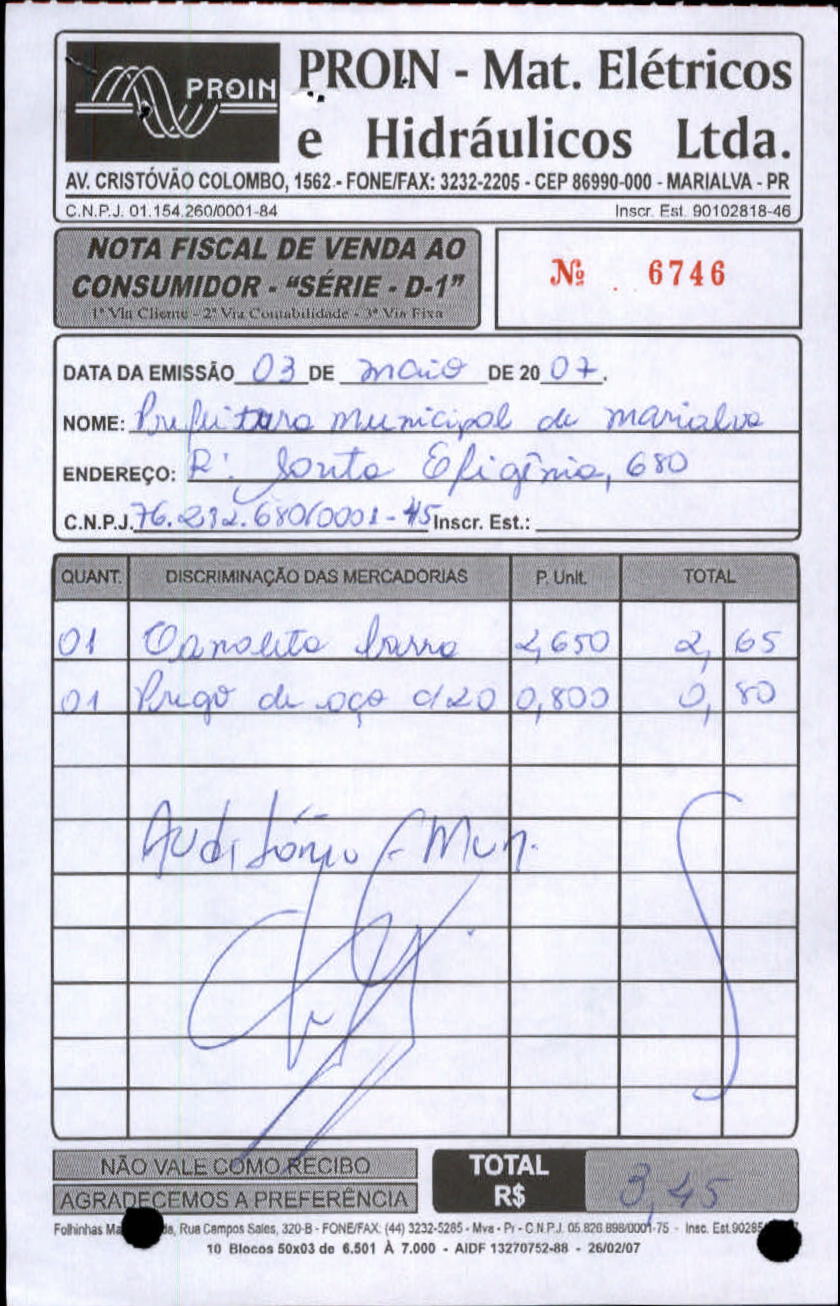 PROIN
PROIN - Mat. Elétricos
e Hidráulicos Ltda.
AV. CRISTÓVÃO COLOMBO, 1562 - FONE/FAX: 3232-2205 - CEP 86990-000 - MARIALVA - PR
C.N.P.J. 01.154.260/0001-84 Inscr. Est. 90102818-46
NOTA FISCAL DE VENDA AO
CONSUMIDOR - "SÉRIE - D-1"
1ª Via Cliente - 2ª Via Contabilidade - 3ª Via Fixa
Nº 6746
DATA DA EMISSÃO 03 DE maio DE 20 07.
NOME: Prefeitura municipal de marialva
ENDEREÇO: R: Santa Efigênia, 680
C.N.P.J. 76.282.680/0001-45 Inscr. Est.:
QUANT. DISCRIMINAÇÃO DAS MERCADORIAS P. Unit. TOTAL
01 barra 2,650 2,65
01 Prego de aço c/20 0,800 0,80
Auditório - Mun.
NÃO VALE COMO RECIBO
AGRADECEMOS A PREFERÊNCIA
TOTAL
R$ 3,45
Folhinhas Rua Campos Sales, 320-B - FONE/FAX: (44) 3232-5285 - Mva - Pr - C.N.P.J. 05.826.898/0001-75 - Insc. Est.
10 Blocos 50x03 de 6.501 À 7.000 - AIDF 13270752-88 - 26/02/07